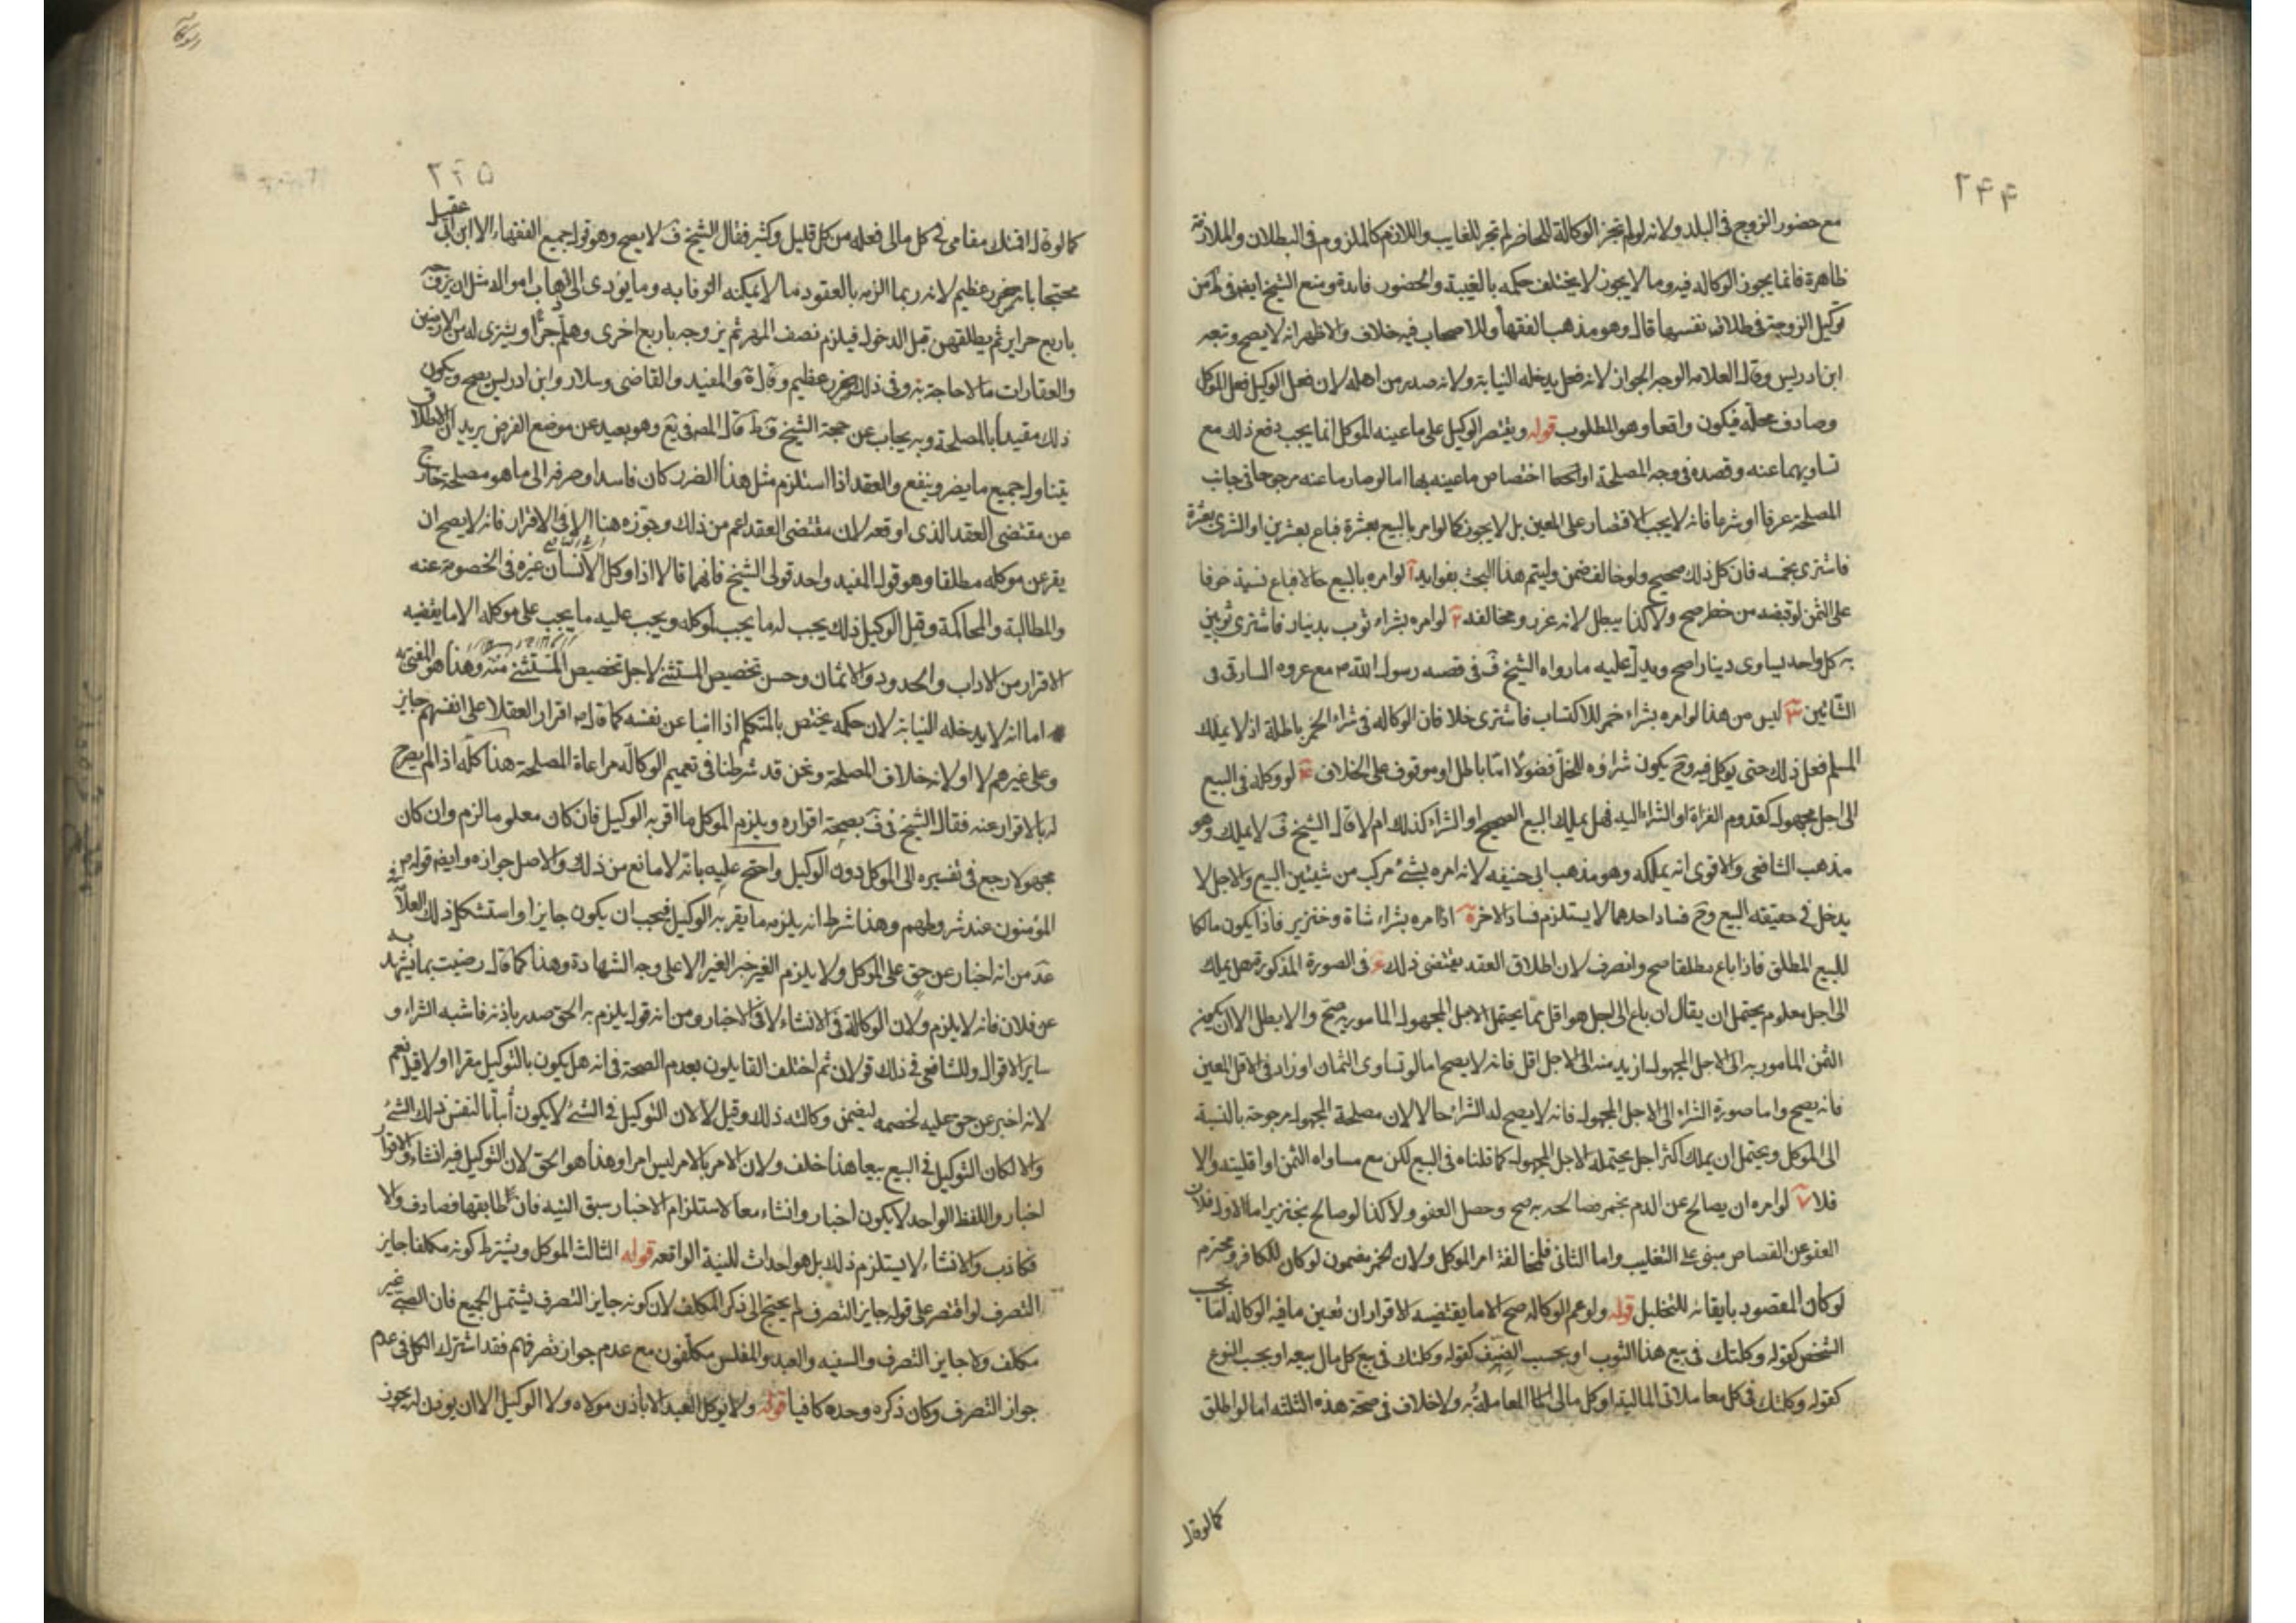 ۲۴۴
مع حضور الزوج فى البلد ولانه لو لم تجز الوكالة للحاضر لم تجز للغايب واللازم كالملزوم فى البطلان والملازمة
ظاهرة فانما يجوز الوكاله فيه وما لا يجوز لا يختلف حكمه بالغيبة والحضور فايدة ومنع الشيخ ايضا فى ط من
توكيل الزوجة فى طلاق نفسها قال وهو مذهب الفقهاء وللاصحاب فيه خلاف والاظهر انه لا يصح وتبعه
ابن ادريس وقال العلامه الوجه الجواز لانه فعل يدخله النيابة ولانه صدر من اهله لان فعل الوكيل فعل الموكل
وصادف محله فيكون واقعا وهو المطلوب قوله ويقتصر الوكيل على ما عينه الموكل انما يجب دفع ذلك مع
تساويهما عنه وقصده فى وجه المصلحة او اختصاص ما عينه بها اما لو صار ما عنه مرجوحا فى جانب
المصلحة عرفا او شرعا فانه لا يجب الاقتصار على المعين بل لا يجوز كما لو امر بالبيع بعشرة فباع بعشرين او الشرى بعشرة
فاشترى بخمسه فان كل ذلك صحيح ولو خالف ضمن وليتم هذا البحث بفوايد آ لو امره بالبيع حالا فباع نسية خوفا
على الثمن لو قبضه من خطر صح ولا كذا يبطل لانه غرر ومخالفه ۲ لو امره بشراء ثوب بدينار فاشترى ثوبين
به كل واحد يساوى دينارا صح ويدل عليه ما رواه الشيخ ف فى قصه رسول الله ص مع عروه البارقى فى
الشاتين ۳ ليس من هذا لو امره بشراء خمر للاكتساب فاشترى خلا فان الوكاله فى شراء الخمر باطلة اذ لا يملك
المسلم فعل ذلك حتى يوكل فيه وح يكون شراؤه للخل فضولا اما باطل او موقوف على الخلاف ۴ لو وكله فى البيع
الى اجل مجهول كقدوم الغزاة او الشراء اليه فهل يملك البيع الصحيح او الشراء كذلك ام لا قال الشيخ ف لا يملك وهو
مذهب الشافعى والاقوى انه يملكه وهو مذهب ابى حنيفه لانه امره بشئ مركب من شيئين البيع والاجل لا
يدخل فى حقيقه البيع وح فساد احدهما لا يستلزم فساد الاخر ۵ اذا امره بشراء شاة وخنزير فاذا يكون مالكا
للبيع المطلق فاذا باع مطلقا صح وانصرف لان اطلاق العقد يقتضى ذلك ۶ فى الصورة المذكورة هل يملك
الى اجل معلوم يحتمل ان يقال ان باع الى اجل هو اقل مما يحتمل الاجل المجهول المامور به صح والا بطل الا ان يكون
الثمن المامور به الى الاجل المجهول ازيد منه الى الاجل اقل فانه لا يصح اما لو تساوى الثمان او زاد فى الاقل المعين
فانه يصح واما صورة الشراء الى الاجل المجهول فانه لا يصح له الشراء حالا لان مصلحة المجهول مرجوحة بالنسبة
الى الموكل ويحتمل ان يملك اكثر اجل يحتمله الاجل المجهول كما قلناه فى البيع لكن مع مساواه الثمن او اقليته والا
فلا ۷ لو امره ان يصالح عن الدم بخمر فصالحه به صح وحصل العفو ولا كذا لو صالح بخنزير اما الاول فلان
العفو عن القصاص مبنى على التغليب واما الثانى فلمخالفة امر الموكل ولان الخمر مضمون لو كان للكافر ومحترم
لو كان المقصود بابقائه للتخليل قوله ولو عم الوكاله صح الا ما يقتضيه الاقرار ان تعين ما فيه الوكاله اما بحسب
الشخص كقوله وكلتك فى بيع هذا الثوب او بحسب الصنف كقوله وكلتك فى بيع كل مال بيعه او بحسب النوع
كقوله وكلتك فى كل معاملاتى الماليه او كل مالى المعاملة به ولا خلاف فى صحة هذه الثلثه اما لو اطلق
كما لو قال
۲۴۵
كما لو قال اقمتك مقامى فى كل مالى فعله من كل قليل وكثير فقال الشيخ ف لا يصح وهو قول جميع الفقهاء الا ابن ابى عقيل
محتجا بانه ضرر عظيم لانه ربما الزمه بالعقود ما لا يمكنه الوفا به وما يؤدى الى ذهاب امواله مثل ان يزوجه
باربع حراير ثم يطلقهن قبل الدخول فيلزم نصف المهر ثم يزوجه باربع اخرى وهلم جرا ويشترى له من الارضين
والعقارات ما لا حاجة به وفى ذلك ضرر عظيم وقال ة والمفيد والقاضى وسلار وابن ادريس يصح ويكون
ذلك مقيدا بالمصلحة وبه يجاب عن حجة الشيخ ف ط قال المص فى يع وهو بعيد عن موضع الفرض يريد ان الاطلاق
يتناول جميع ما يضر وينفع والعقد اذا استلزم مثل هذا الضرر كان فاسدا وصرفه الى ما هو مصلحة خارج
عن مقتضى العقد الذى اوقعه لان مقتضى العقد اعم من ذلك وجوزه هنا الا فى الاقرار فانه لا يصح ان
يقر عن موكله مطلقا وهو قول المفيد واحد قولى الشيخ فانهما قالا اذا وكل الانسان غيره فى الخصومه عنه
والمطالبة والمحاكمة وقبل الوكيل ذلك يجب له ما يجب لموكله ويجب عليه ما يجب على موكله الا ما يقضيه
الاقرار من الاداب والحدود والاثمان وحسن تخصيص المستثنى لاجل تخصيص المستثنى منه وهذا هو المفتى به
اما انه لا يدخله النيابة لان حكمه يختص بالمتكلم اذا انبا عن نفسه كما قال ص اقرار العقلا على انفسهم جايز
وعلى غيرهم لا او لانه خلاف المصلحة ونحن قد شرطنا فى تعميم الوكاله مراعاة المصلحة هذا كله اذا لم يصرح
له بالاقرار عنه فقال الشيخ فى ف بصحة اقراره ويلزم الموكل ما اقر به الوكيل فان كان معلوما لزم وان كان
مجهولا رجع فى تفسيره الى الموكل دون الوكيل واحتج عليه بانه لا مانع من ذلك والاصل جوازه وايضا قوله ص
المؤمنون عند شروطهم وهذا شرط انه يلزمه ما يقر به الوكيل فيجب ان يكون جايزا واستشكل ذلك العلامة
عد من انه اخبار عن حق على الموكل ولا يلزم الغير خبر الغير الا على وجه الشهادة وهذا كما قال رضيت بما يشهد به
عن فلان فانه لا يلزم ولان الوكالة فى الانشاء لا فى الاخبار ومن انه قول يلزم به الحق صدر باذنه فاشبه الشراء و
ساير الاقوال وللشافعى فى ذلك قولان ثم اختلف القايلون بعدم الصحة فى انه هل يكون بالتوكيل مقرا او لا قيل نعم
لانه اخبر عن حق عليه لخصمه ليضمن وكالته ذلك وقيل لا لان التوكيل فى الشئ لا يكون لنفس ذلك الشئ
والا لكان التوكيل فى البيع بيعا هذا خلف ولان الامر بالامر ليس امرا وهذا هو الحق لان التوكيل فيه انشاء والاقرار
اخبار واللفظ الواحد لا يكون اخبار وانشاء معا لاستلزام الاخبار سبق النسبه فان طابقها فصادف والا
فكاذب والانشاء لا يستلزم ذلك بل هو احداث للنسبة الواقعه قوله الثالث الموكل ويشترط كونه مكلفا جايز
التصرف لو اقتصر على قوله جايز التصرف لم يحتج الى ذكر المكلف لان كونه جايز التصرف يشتمل الجميع فان الصبى غير
مكلف ولا جايز التصرف والسفيه والعبد والمفلس مكلفون مع عدم جواز تصرفهم فقد اشترك الكل فى عدم
جواز التصرف وكان ذكره وحده كافيا قوله ولا يوكل العبد الا باذن مولاه ولا الوكيل الا ان يوذن له يجوز